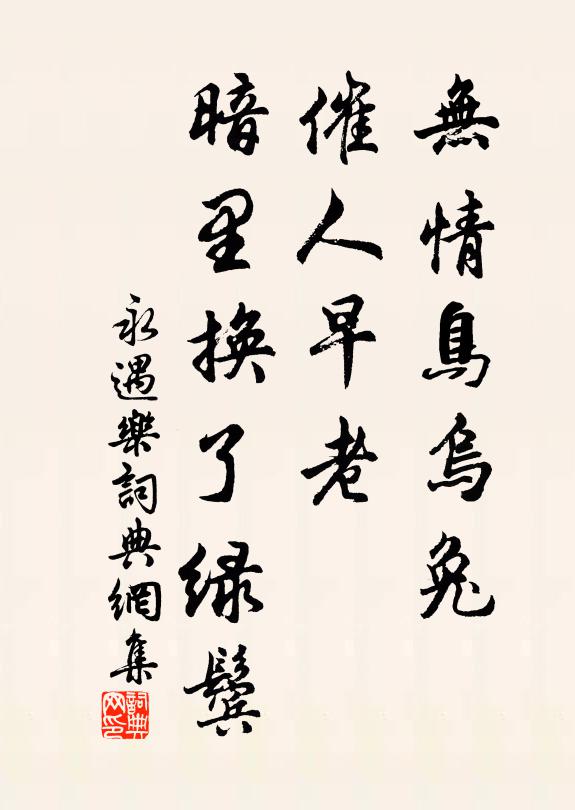 無情鳥烏兔
催人早老
暗里換了緑鬓
永遇樂詞典網集
詞典網印